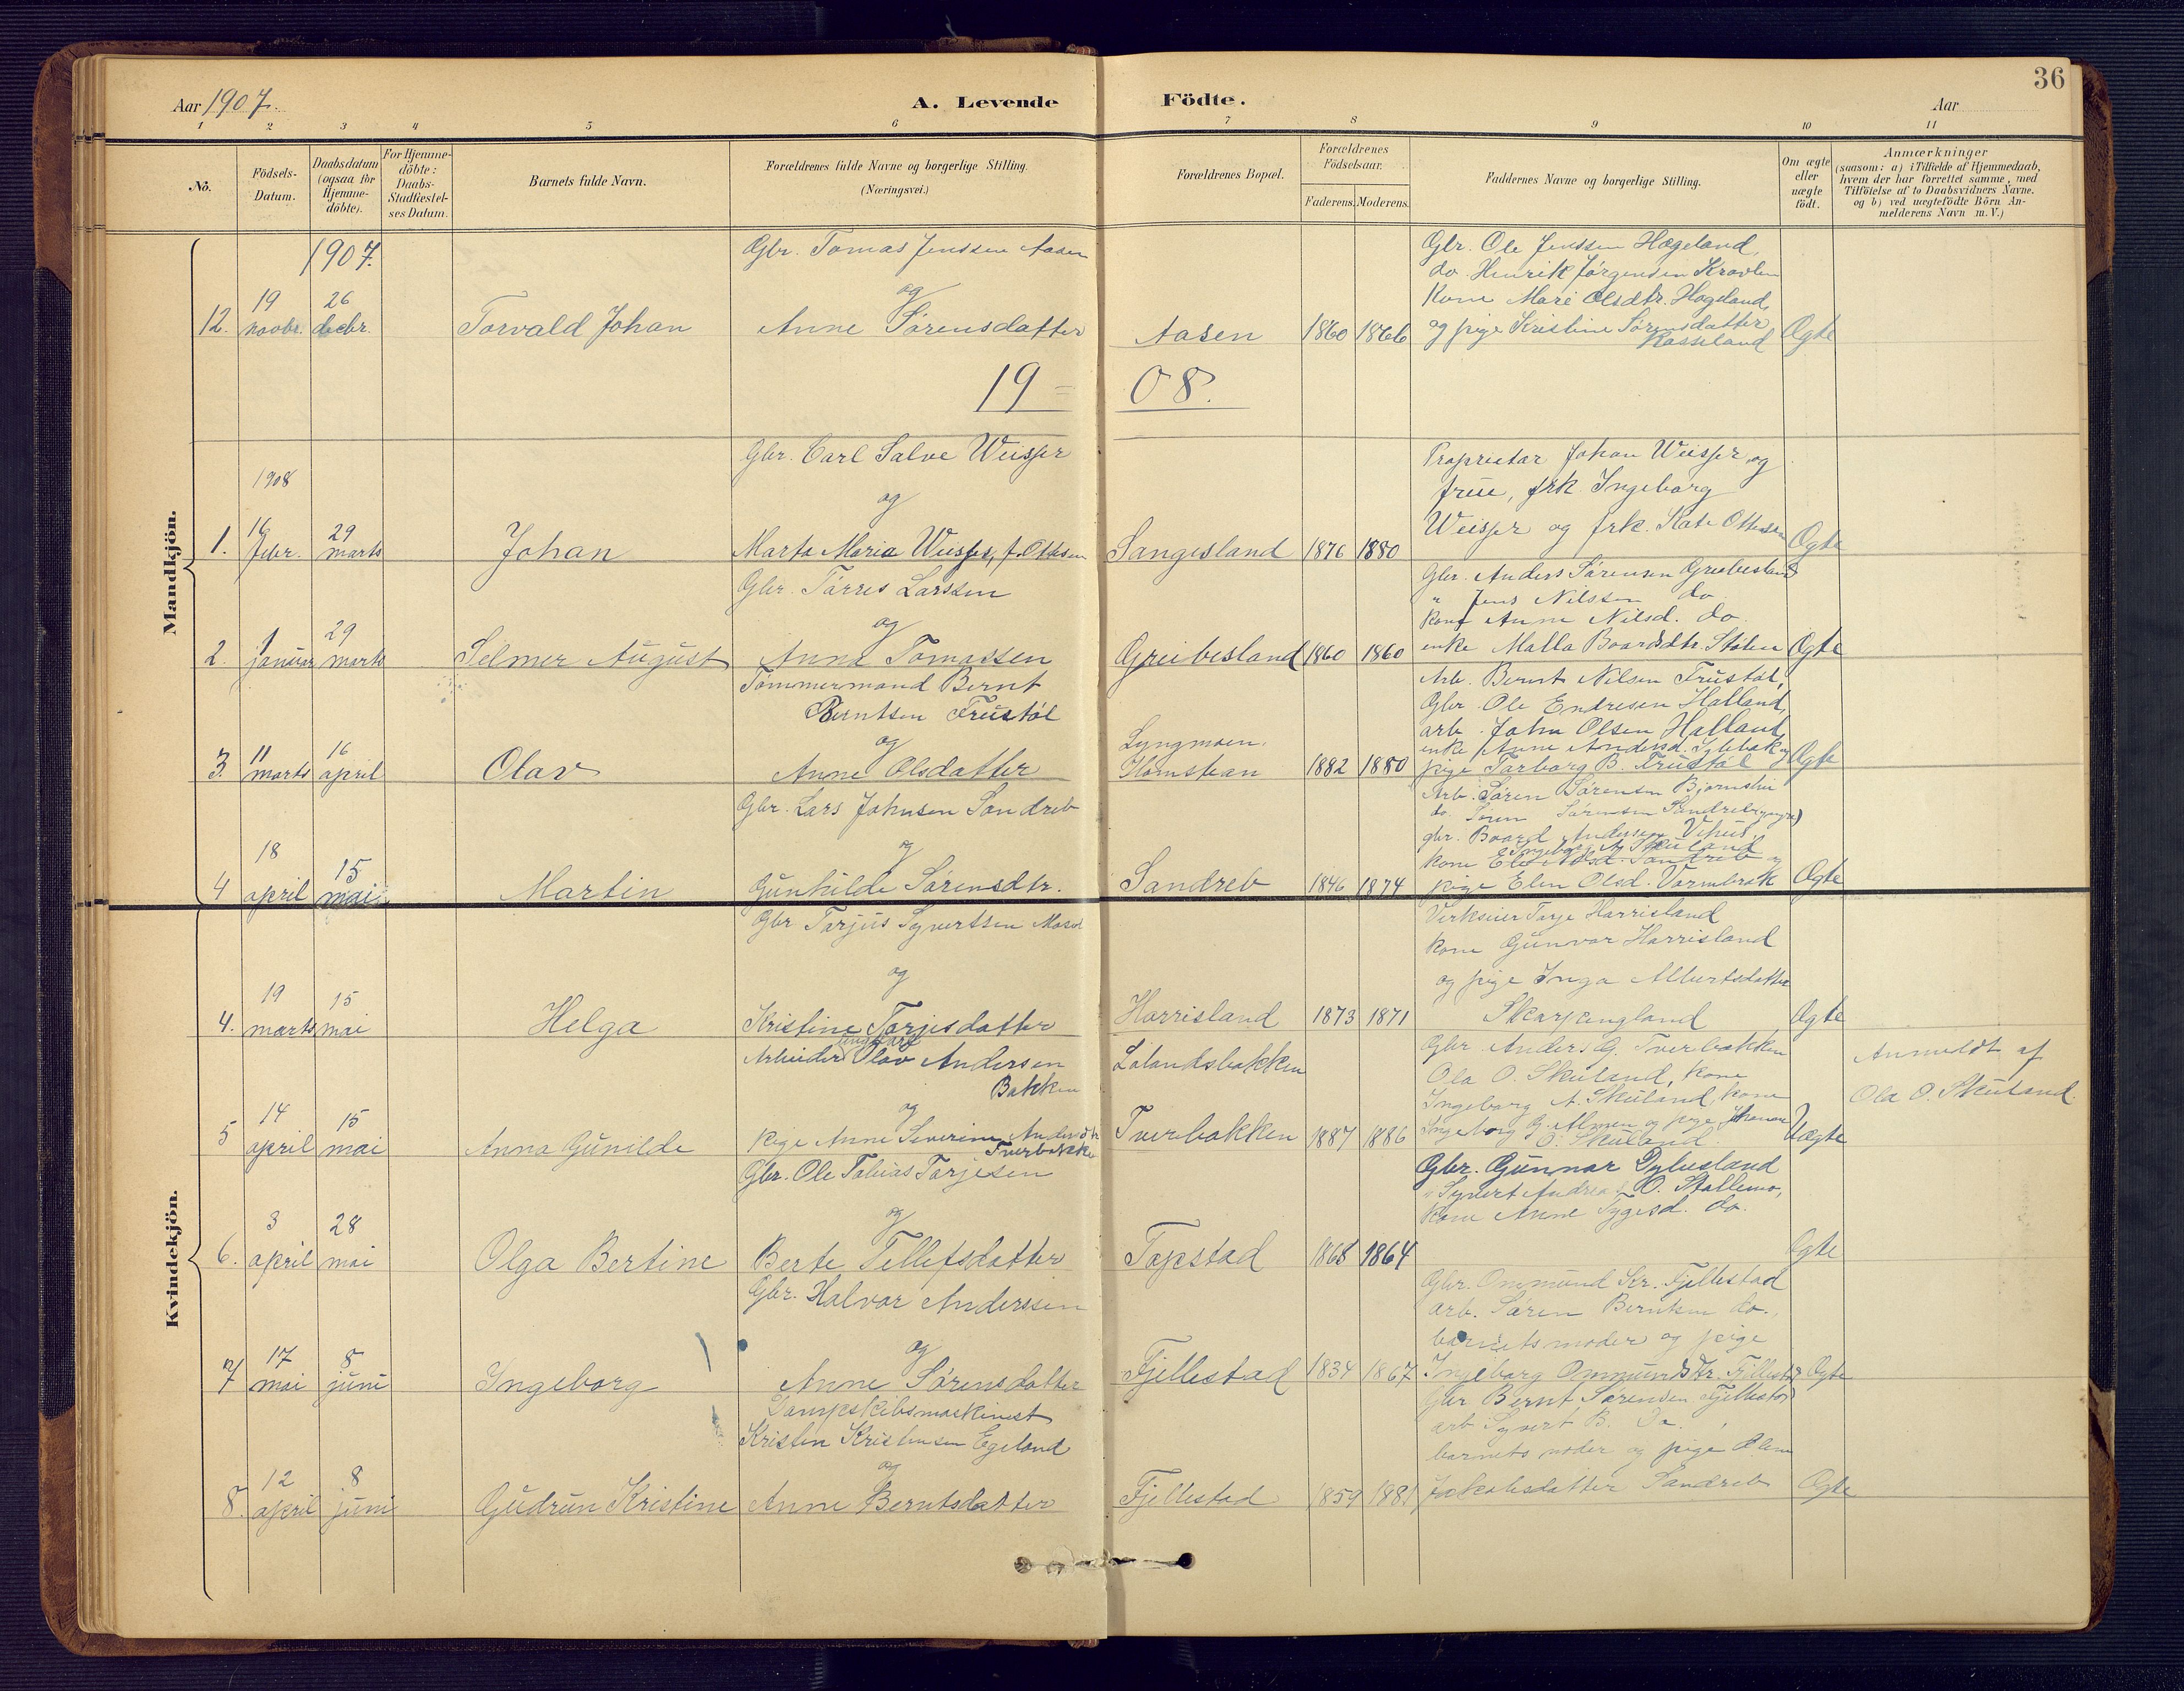 36
Aar 1907.
A. Levende Födte.
Aar
1 2 3 4 5 6 7 8 9 10 11
No.
Födsels-
Datum.
Daabsdatum
(ogsaa for
Hjemme-
döbte).
For Hjemme-
döbte:
Daabs-
Stadfæstel-
ses Datum.
Barnets fulde Navn.
Forældrenes fulde Navne og borgerlige Stilling.
(Næringsvei.)
Forældrenes Bopæl.
Forældrenes
Födselsaar.
Faderens. Moderens.
Faddernes Navne og borgerlige Stilling.
Om ægte
eller
uægte
født.
Anmærkninger
(saasom: a) i Tilfælde af Hjemmedaab,
hvem der har forrettet samme, med
Tilföielse af to Daabsvidners Navne.
og b) ved uægtefödte Börn An-
melderens Navn m. V.)
Mandkjön.
1907.
12.
19
novbr.
26
decbr.
Torvald Johan
Gbr. Tomas Jenssen Aasen
og
Anne Sørensdatter
Aasen
1860 1866
Gbr. Ole Jenssen Hægeland,
do. Henrik Jørgensen
Kone Mari Olsdtr. Hægeland,
og pige Kristine Sørensdatter
Ægte
19 = 08.
1908
1.
16
febr.
29
marts
Johan
Gbr. Carl Salve Weisser
og
Marta Maria Weisser, f. Ottesen
Sangesland
1876 1880
Proprietær Johan Weisser og
frue, frk Ingeborg
Weisser og frk. Kate Ottesen
Ægte
2.
1
januar
29
marts
Selmer August
Gbr. Tørres Larssen
og
Anna Tomassen
Greibesland
1860 1860
Gbr. Anders Sørensen Greibesland
" Jens Nilssen do
kone Anne Nilsd. do.
enke Malla Boardsdtr. Stølen
Ægte
3.
11
marts
16
april
Olav
Tømmermand Bernt
Berntsen Frustøl
og
Anne Olsdatter
Lyngmoen.
1882 1880
Arb. Bernt Nilsen Frustøl,
Gbr. Ole Endresen Halland,
arb. John Olsen Halland,
enke Anne Andersd. og
pige Tarborg B. Frustøl
Ægte
4
18
april
15
mai
Martin
Gbr. Lars Johnsen Sandreb
og
Gunhilde Sørensdtr.
Sandreb
1846 1874
Arb. Søren Sørensen
do. Søren Sørensen Sandreb
gbr. Board Andersen
Ingeborg A. Skuland
kone Sandreb og
pige Elen Olsd. Varmbræk
Ægte
Kvindekjön.
4.
19
marts
15
mai
Helga
Gbr Tarjus Syvertsen
og
Kristine Tarjesdatter
Harrisland
1873 1871
Verkseier Tarje Harrisland
kone Gunvor Harrisland
og pige Inga Albertsdatter
Skarpengland
Ægte
5
14
april
15
mai
Anna Gunilde
ungkarl
Arbeider Olav Andersen
Bakken
og
pige Anne Severine Andersdtr
Tverbakken
Lølandsbakken
Tverbakken
1887 1886
Gbr Anders G. Tverbakken
Ola O. Skuland, kone
Ingeborg A. Skuland, kone
Ingeborg G. og pige
O. Skuland
Uægte
Anmeldt af
Ola O. Skuland.
6.
3
april
28
mai
Olga Bertine
Gbr. Ole Tobias Tarjesen
og
Berte Tellefsdatter
Tapstad
1868 1864
Gbr. Gunnar
" Syvert Andreas O. Stallemo,
kone Anne Tygesd. do.
Ægte
7
17
mai
8
juni
Ingeborg
Gbr. Halvor Anderssen
og
Anne Sørensdatter
Fjellestad
1834 1867
Gbr. Ommund Kr. Fjellestad
arb. Søren Berntsen do.,
barnets moder og pige
Ingeborg Ommundsdtr. Fjellestad
Ægte
8.
12
april
8
juni
Gudrun Kristine
Dampskibsmaskinest
Kristen Kristensen Egeland
og
Anne Berntsdatter
Fjellestad
1859 1881
Gbr Bernt Sørensen Fjellestad
arb Syvert B. Do
barnets moder og pige Elen
Jakobsdatter Sandreb
Ægte